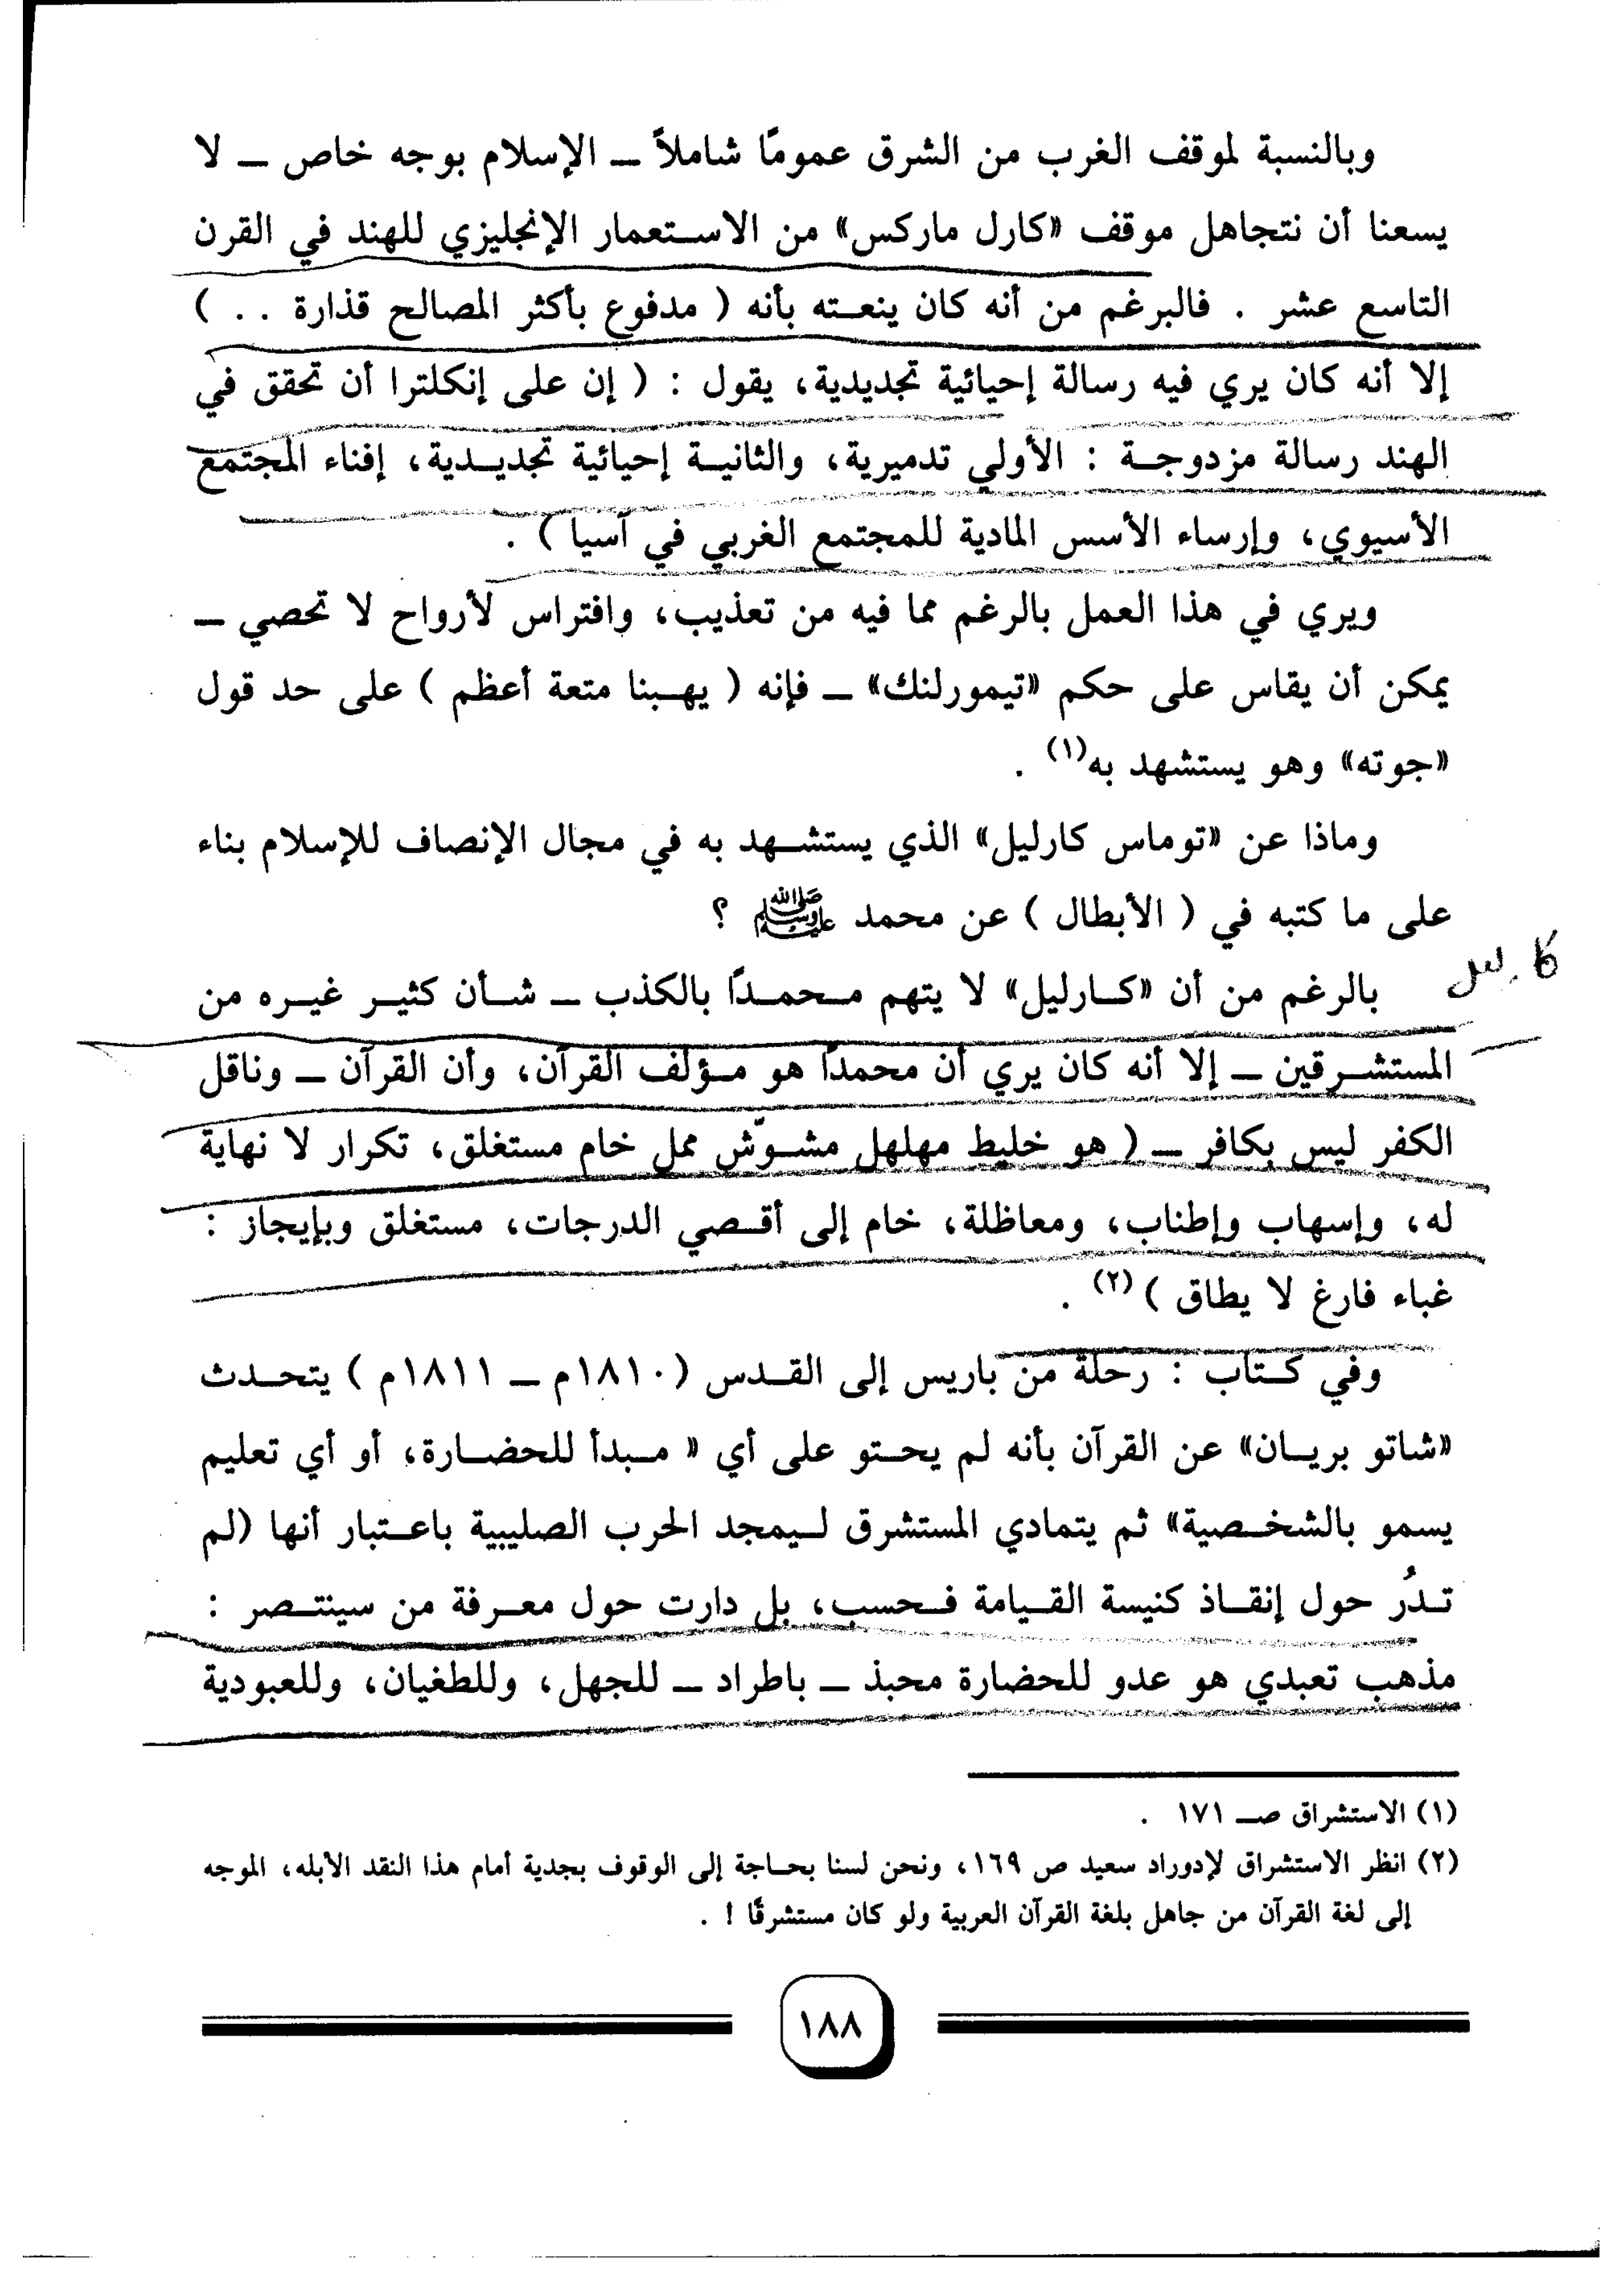 وبالنسبة لموقف الغرب من الشرق عمومًا شاملاً ــ الإسلام بوجه خاص ــ لا
يسعنا أن نتجاهل موقف «كارل ماركس» من الاستعمار الإنجليزي للهند في القرن
التاسع عشر . فالبرغم من أنه كان ينعته بأنه ( مدفوع بأكثر المصالح قذارة . . )
إلا أنه كان يري فيه رسالة إحيائية تجديدية، يقول : ( إن على إنكلترا أن تحقق في
الهند رسالة مزدوجة : الأولي تدميرية، والثانية إحيائية تجديدية، إفناء المجتمع
الأسيوي، وإرساء الأسس المادية للمجتمع الغربي في آسيا ) .
ويري في هذا العمل بالرغم مما فيه من تعذيب، وافتراس لأرواح لا تحصي ــ
يمكن أن يقاس على حكم «تيمورلنك» ــ فإنه ( يهبنا متعة أعظم ) على حد قول
«جوته» وهو يستشهد به(١) .
وماذا عن «توماس كارليل» الذي يستشهد به في مجال الإنصاف للإسلام بناء
على ما كتبه في ( الأبطال ) عن محمد ﷺ ؟
بالرغم من أن «كارليل» لا يتهم محمدًا بالكذب ــ شأن كثير غيره من
المستشرقين ــ إلا أنه كان يري أن محمدًا هو مؤلف القرآن، وأن القرآن ــ وناقل
الكفر ليس بكافر ــ ( هو خليط مهلهل مشوّش ممل خام مستغلق، تكرار لا نهاية
له، وإسهاب وإطناب، ومعاظلة، خام إلى أقصي الدرجات، مستغلق وبإيجاز :
غباء فارغ لا يطاق ) (٢) .
وفي كتاب : رحلة من باريس إلى القدس (١٨١٠م ــ ١٨١١م ) يتحدث
«شاتو بريان» عن القرآن بأنه لم يحتو على أي « مبدأ للحضارة، أو أي تعليم
يسمو بالشخصية» ثم يتمادي المستشرق ليمجد الحرب الصليبية باعتبار أنها (لم
تدُر حول إنقاذ كنيسة القيامة فحسب، بل دارت حول معرفة من سينتصر :
مذهب تعبدي هو عدو للحضارة محبذ ــ باطراد ــ للجهل، وللطغيان، وللعبودية
(١) الاستشراق صـ ١٧١ .
(٢) انظر الاستشراق لإدوراد سعيد ص ١٦٩، ونحن لسنا بحاجة إلى الوقوف بجدية أمام هذا النقد الأبله، الموجه
إلى لغة القرآن من جاهل بلغة القرآن العربية ولو كان مستشرقًا ! .
١٨٨